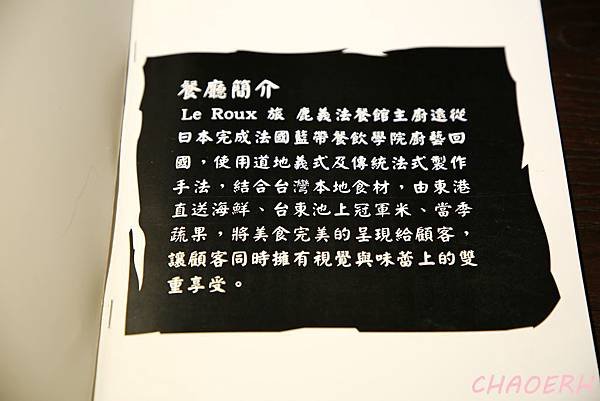 餐廳簡介
Le Roux 旅 鹿義法餐館主廚遠從
日本完成法國藍帶餐飲學院廚藝回
國，使用道地義式及傳統法式製作
手法，結合台灣本地食材，由東港
直送海鮮、台東池上冠軍米、當季
蔬果，將美食完美的呈現給顧客，
讓顧客同時擁有視覺與味蕾上的雙
重享受。
CHAOERH